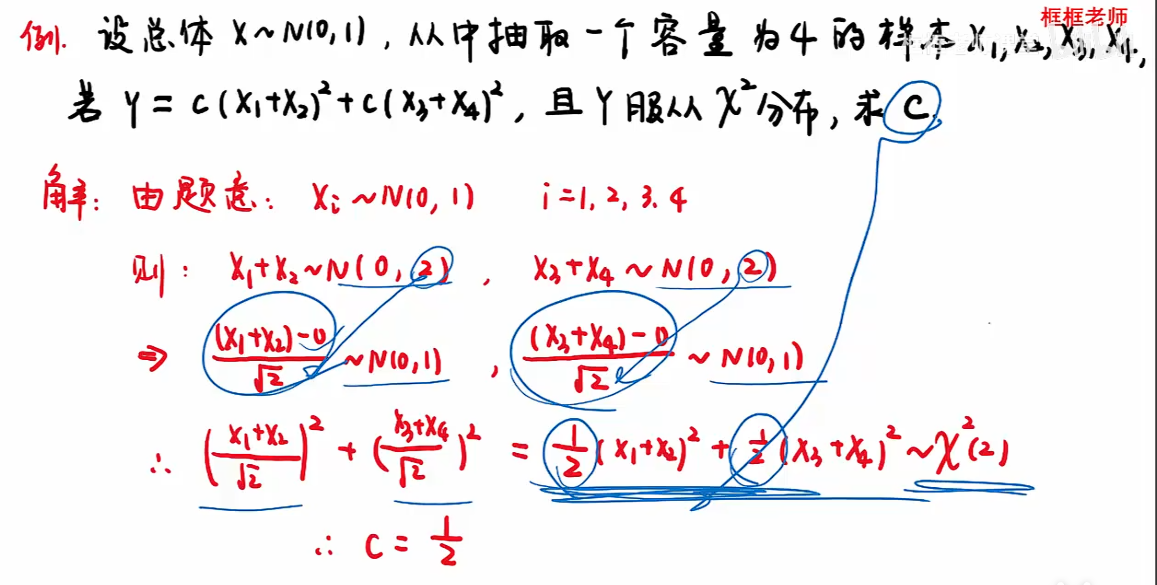 框框老师
例. 设总体 X~N(0,1), 从中抽取一个容量为4的样本 X₁,X₂,X₃,X₄,
若 Y = C(X₁+X₂)² + C(X₃+X₄)², 且 Y 服从 χ² 分布, 求 C.
解: 由题意: Xᵢ ~N(0,1) i=1,2,3.4
则: X₁+X₂~N(0,2), X₃+X₄ ~N(0,2)
⇒ ((X₁+X₂)-0)/√2 ~N(0,1), ((X₃+X₄)-0)/√2 ~ N(0,1)
∴ ((X₁+X₂)/√2)² + ((X₃+X₄)/√2)² = 1/2(X₁+X₂)² + 1/2(X₃+X₄)² ~χ²(2)
∴ C = 1/2